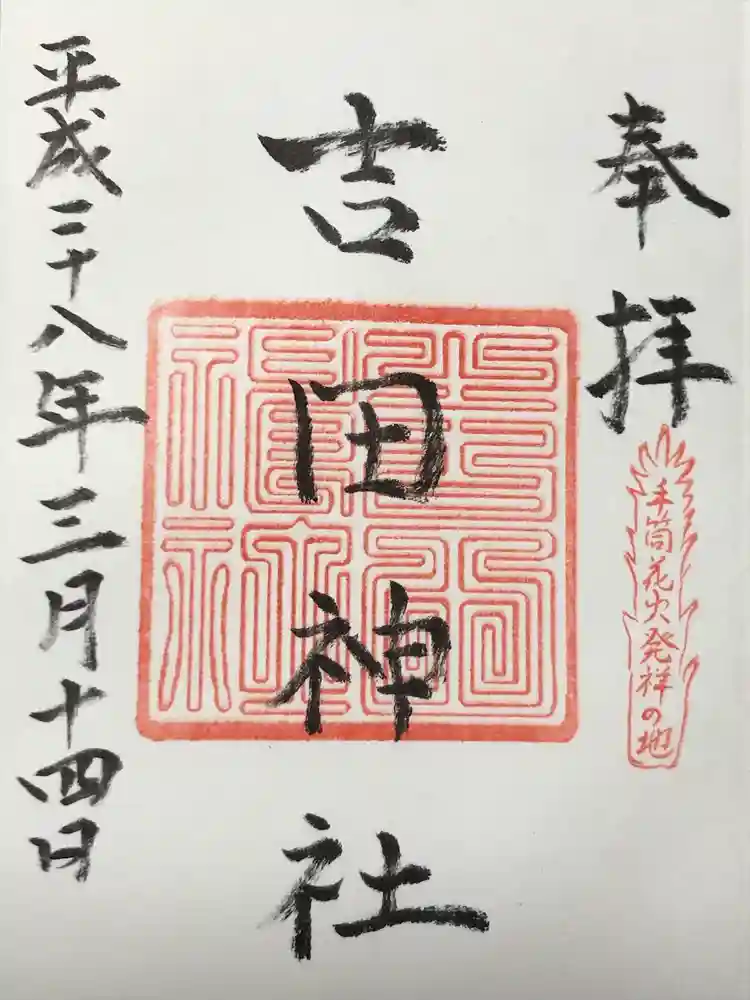 奉拝
手筒花火発祥の地
吉田神社
平成二十八年三月十四日